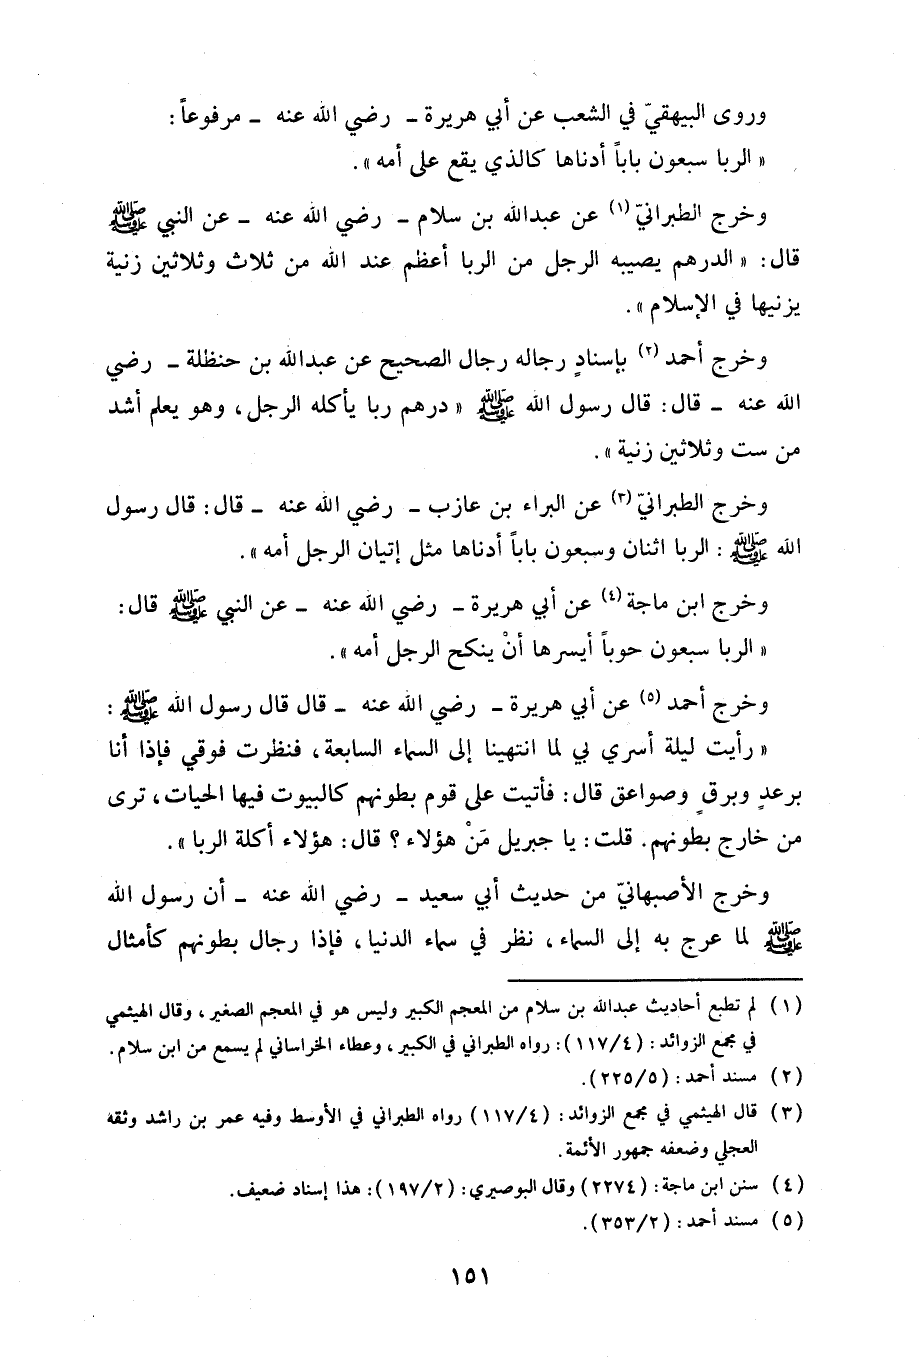 وروى البيهقيّ في الشعب عن أبي هريرة ـ رضي الله عنه ـ مرفوعاً:
« الربا سبعون باباً أدناها كالذي يقع على أمه ».
وخرج الطبرانيّ (١) عن عبدالله بن سلام ـ رضي الله عنه ـ عن النبي ﷺ
قال: « الدرهم يصيبه الرجل من الربا أعظم عند الله من ثلاث وثلاثين زنية
يزنيها في الإسلام ».
وخرج أحمد (٢) بإسنادٍ رجاله رجال الصحيح عن عبدالله بن حنظلة ـ رضي
الله عنه ـ قال: قال رسول الله ﷺ « درهم ربا يأكله الرجل، وهو يعلم أشد
من ست وثلاثين زنية ».
وخرج الطبرانيّ (٣) عن البراء بن عازب ـ رضي الله عنه ـ قال: قال رسول
الله ﷺ : الربا اثنان وسبعون باباً أدناها مثل إتيان الرجل أمه ».
وخرج ابن ماجة (٤) عن أبي هريرة ـ رضي الله عنه ـ عن النبي ﷺ قال:
« الربا سبعون حوباً أيسرها أنْ ينكح الرجل أمه ».
وخرج أحمد (٥) عن أبي هريرة ـ رضي الله عنه ـ قال قال رسول الله ﷺ :
« رأيت ليلة أسري بي لما انتهينا إلى السماء السابعة، فنظرت فوقي فإذا أنا
برعدٍ وبرقٍ وصواعق قال: فأتيت على قوم بطونهم كالبيوت فيها الحيات، ترى
من خارج بطونهم. قلت: يا جبريل مَنْ هؤلاء؟ قال: هؤلاء أكلة الربا ».
وخرج الأصبهانيّ من حديث أبي سعيد ـ رضي الله عنه ـ أن رسول الله
ﷺ لما عرج به إلى السماء، نظر في سماء الدنيا، فإذا رجال بطونهم كأمثال
(١) لم تطبع أحاديث عبدالله بن سلام من المعجم الكبير وليس هو في المعجم الصغير، وقال الهيثمي
في مجمع الزوائد: (١١٧/٤): رواه الطبراني في الكبير، وعطاء الخراساني لم يسمع من ابن سلام.
(٢) مسند أحمد: (٢٢٥/٥).
(٣) قال الهيثمي في مجمع الزوائد: (١١٧/٤) رواه الطبراني في الأوسط وفيه عمر بن راشد وثقه
العجلي وضعفه جمهور الأئمة.
(٤) سنن ابن ماجة: (٢٢٧٤) وقال البوصيري: (١٩٧/٢): هذا إسناد ضعيف.
(٥) مسند أحمد: (٣٥٣/٢).
١٥١